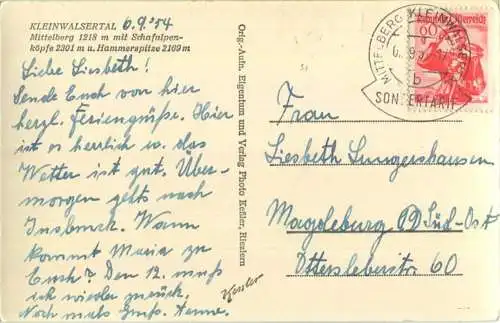 KLEINWALSERTAL
6.9.54
Mittelberg 1218 m mit Schafalpen-
köpfe 2301 m u. Hammerspitze 2169 m
Liebe Liesbeth!
Sende Euch von hier
herzl. Feriengrüße. Hier
ist es herrlich u. das
Wetter ist gut. Über-
morgen gehts nach
Insbruck. Wann
kommt Maria zu
Euch? Den 12. muß
ich wieder zurück.
Nochmals Gruß.
Orig.-Aufn. Eigentum und Verlag Photo Keßler, Riezlern
Kessler
MITTELBERG-KLEINWALSERTAL
b
SONDERTARIF
60
Frau
Liesbeth Sungershausen
Magdeburg Süd-Ost
Ottersleberstr 60